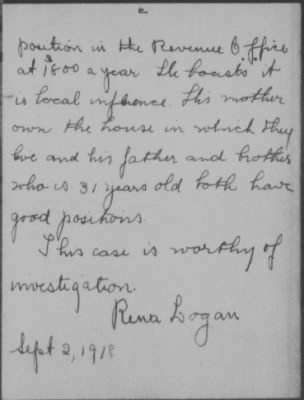 2
position in the Revenue Office
at $1800 a year He boasts it
is local influence. His mother
own the house in which they
live and his father and brother
who is 31 years old both have
good positions.
This case is worthy of
investigation.
Rena Logan
Sept 2, 1918